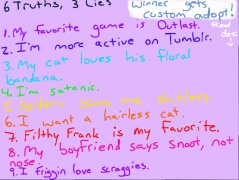 6 Truths, 3 Lies
Winner gets custom adopt!
Read desc ↓
1. My favorite game is Outlast.
2. I'm more active on Tumblr.
3. My cat loves his floral
bandana.
4. I'm satanic.
5. Spiders scare me shitless.
6. I want a hairless cat.
7. Filthy Frank is my favorite.
8. My boyfriend says snoot, not
nose!
9. I friggin love scraggies.